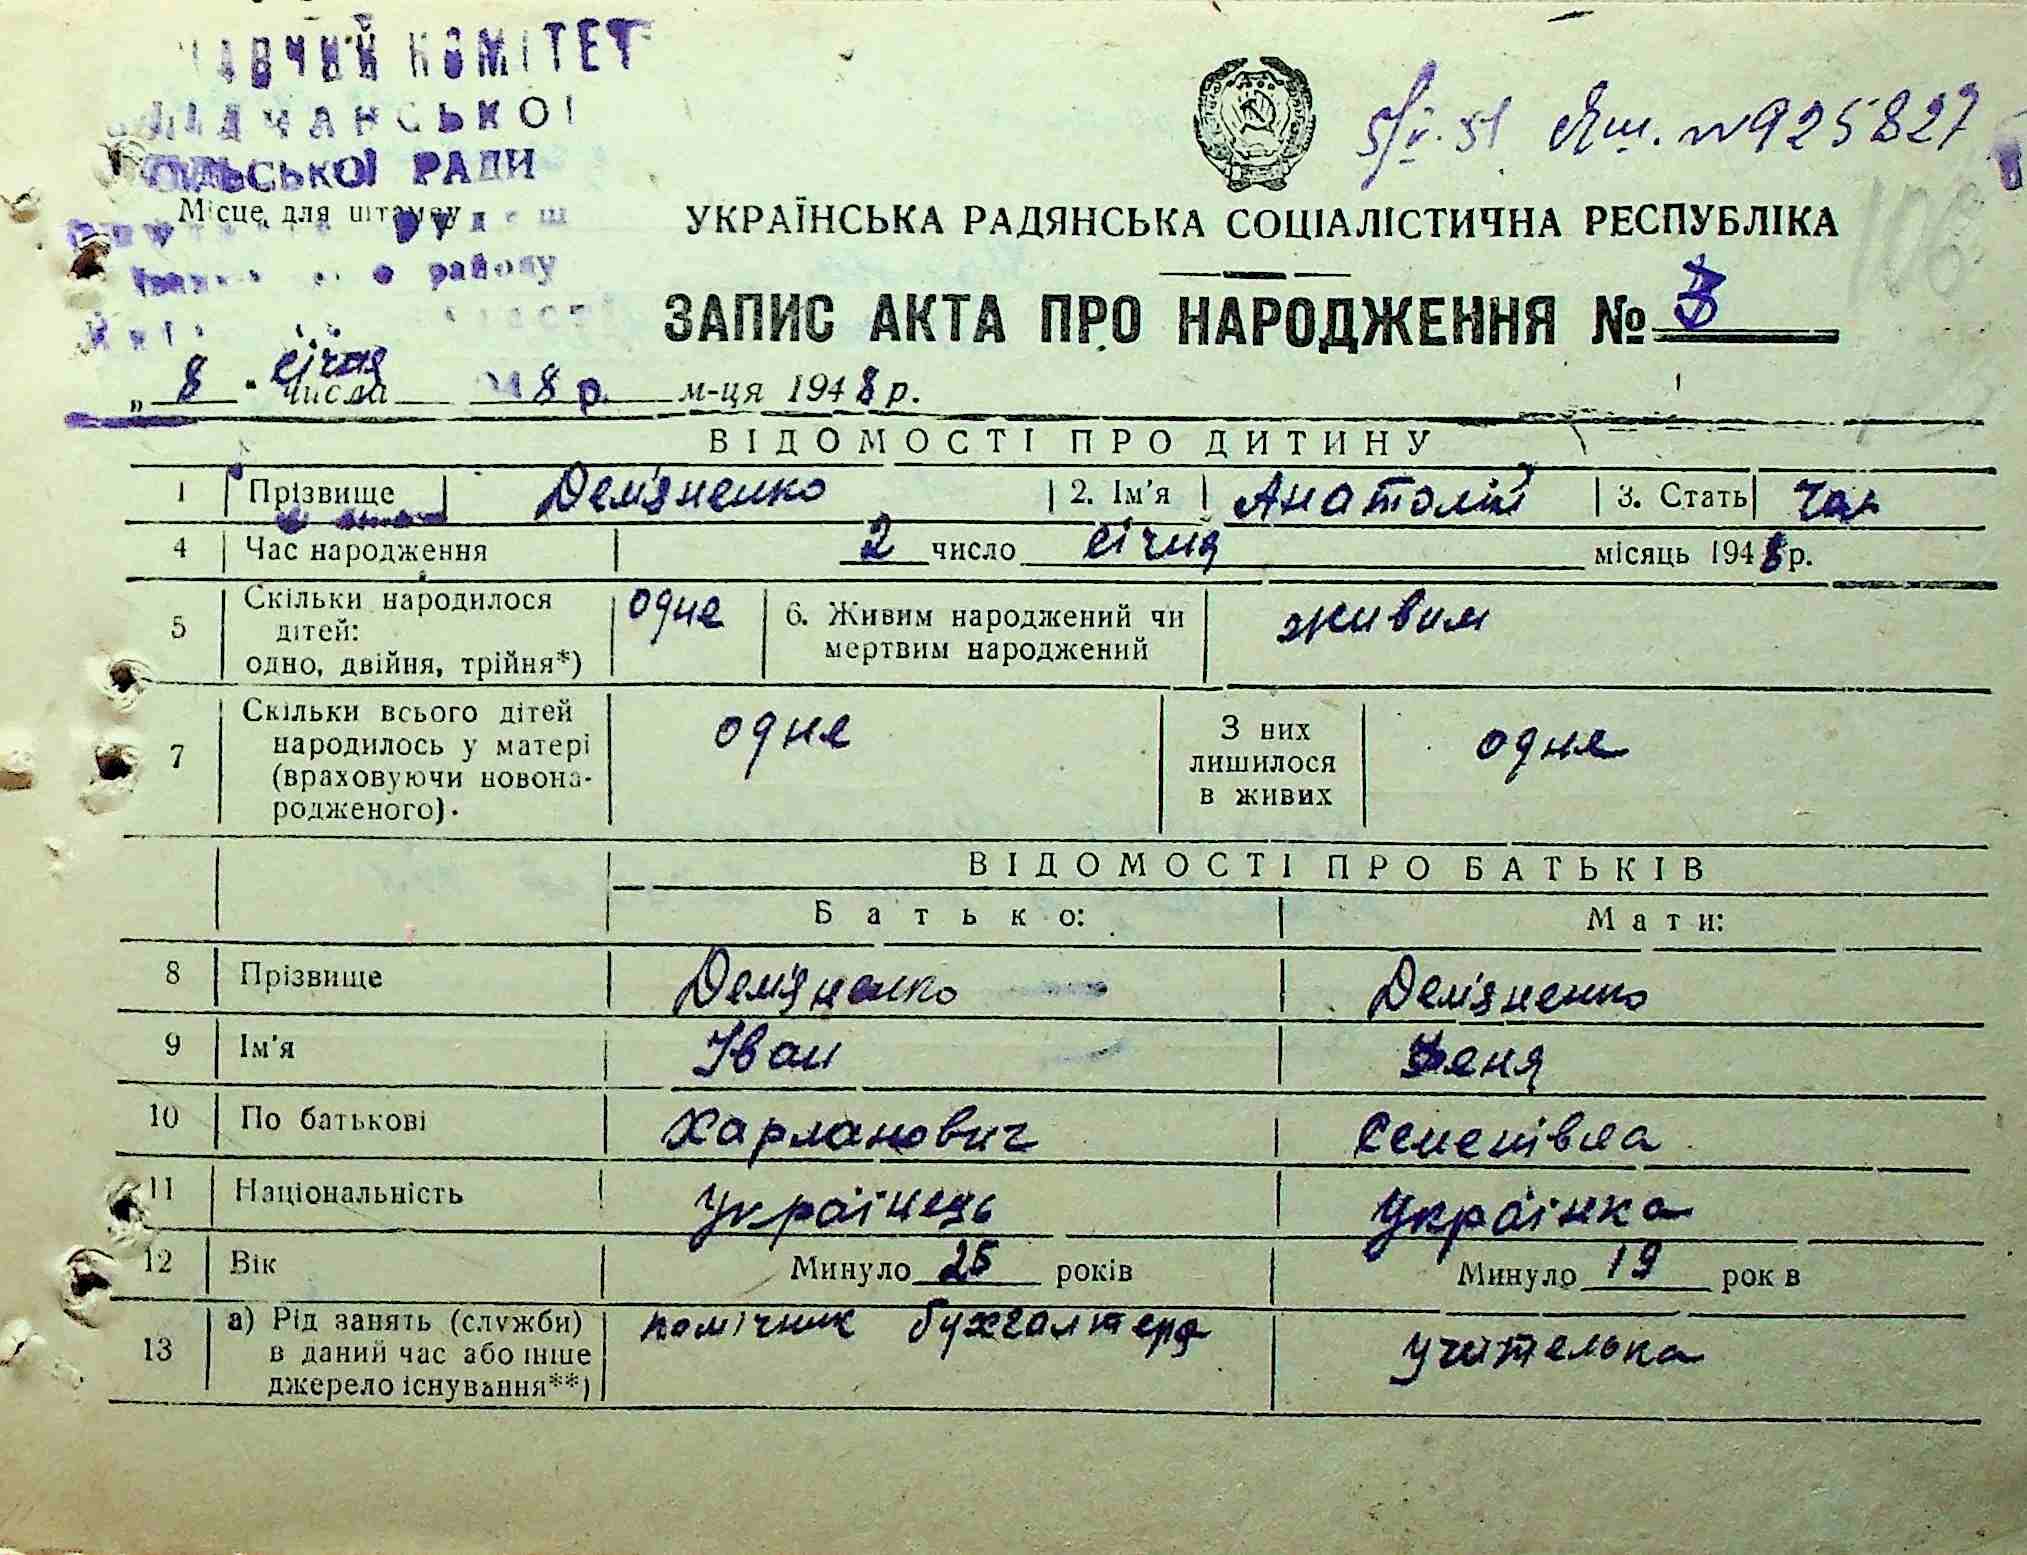 КОМІТЕТ
СІЛЬСЬКОЇ РАДИ
Місце для штампу
району
5/V.51 №925827
106
УКРАЇНСЬКА РАДЯНСЬКА СОЦІАЛІСТИЧНА РЕСПУБЛІКА
ЗАПИС АКТА ПРО НАРОДЖЕННЯ № 3
„ 8 " січня числа 8 р. м-ця 1948 р.
ВІДОМОСТІ ПРО ДИТИНУ
1 Прізвище Дем'яненко 2. Ім'я Анатолій 3. Стать чол
4 Час народження 2 число січня місяць 1948 р.
5 Скільки народилося дітей: одно, двійня, трійня*) одне 6. Живим народжений чи мертвим народжений живим
7 Скільки всього дітей народилось у матері (враховуючи новонародженого). одне З них лишилося в живих одне
ВІДОМОСТІ ПРО БАТЬКІВ
Батько: Мати:
8 Прізвище Дем'яненко Дем'яненко
9 Ім'я Іван Женя
10 По батькові Харланович Семенівна
11 Національність Українець Українка
12 Вік Минуло 25 років Минуло 19 рок в
13 а) Рід занять (служби) в даний час або інше джерело існування**) помічник бухгалтера учителька